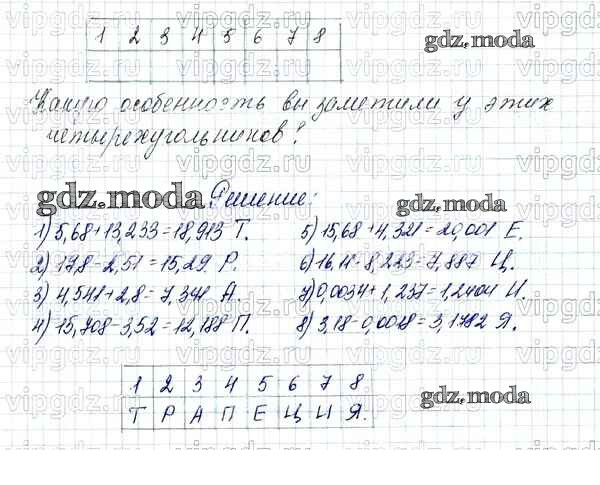 1 2 3 4 5 6 7 8
gdz.moda
Какую особенность вы заметили у этих
четырехугольников?
gdz.moda Решение: gdz.moda
1) 5,68+13,233=18,913 Т. 5) 15,68+4,321=20,001 Е.
2) 17,8-2,51=15,29. Р. 6) 16,11-8,223=7,887 Ц.
3) 4,541+2,8=7,341 А. 7) 0,0034+1,237=1,2404 И.
4) 15,708-3,52=12,188 П. 8) 3,18-0,0018=3,1782 Я.
1 2 3 4 5 6 7 8
Т Р А П Е Ц И Я.
gdz.moda